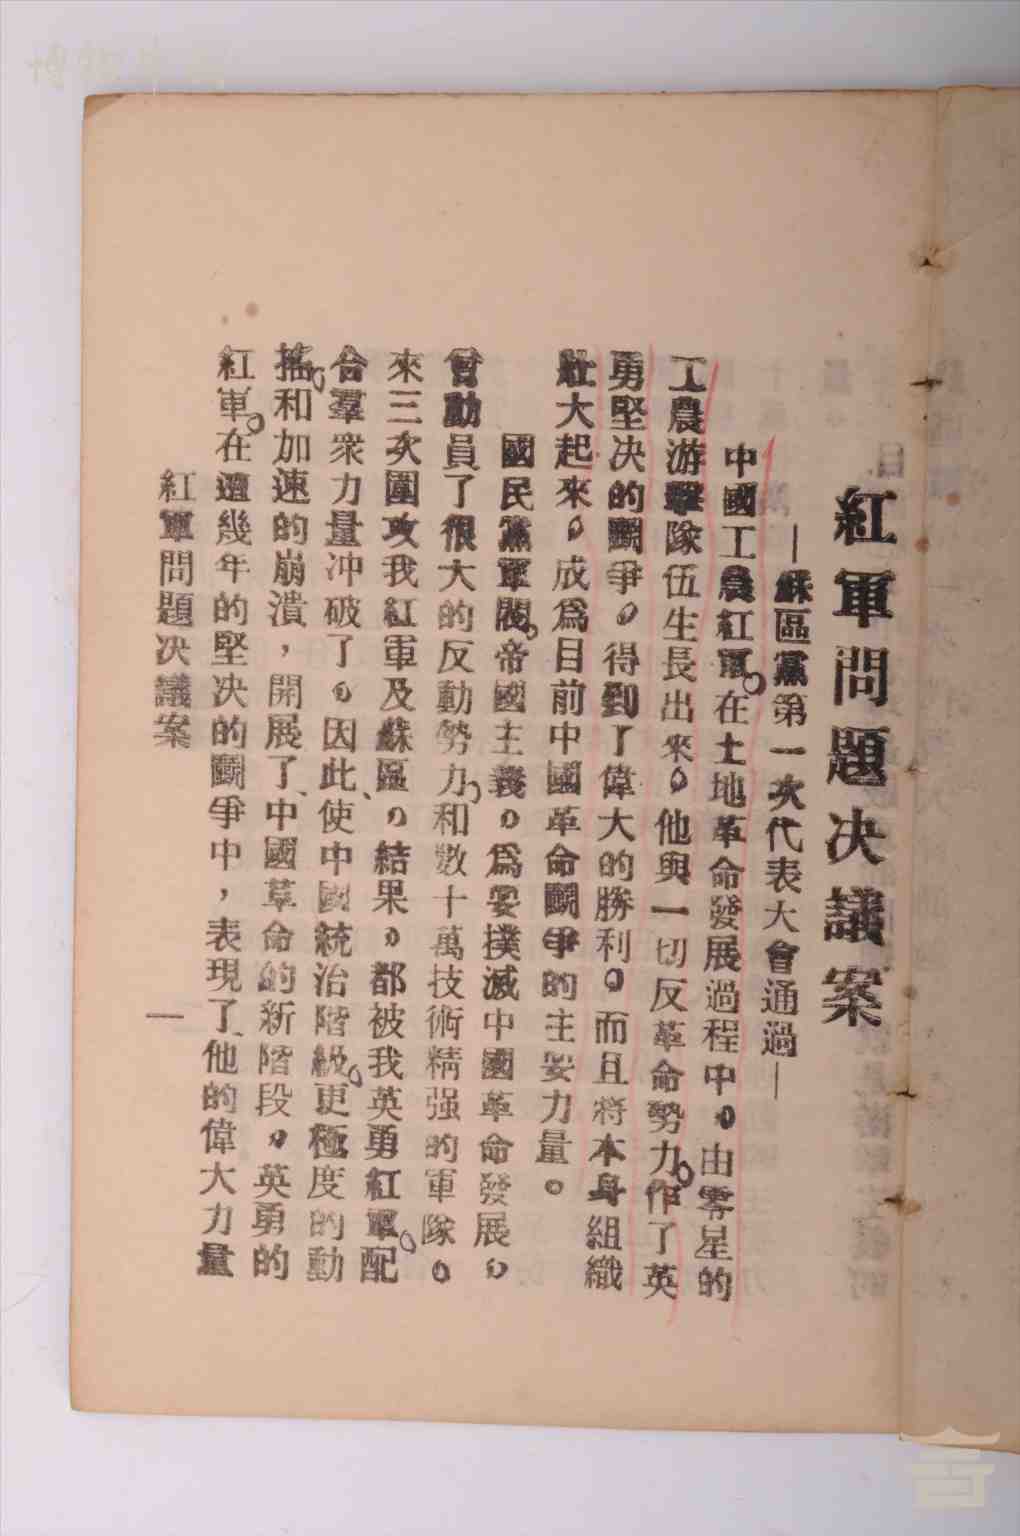 紅軍問題決議案
—蘇區黨第一次代表大會通過—
中國工農紅軍。在土地革命發展過程中。由零星的
工農游擊隊伍生長出來。他與一切反革命勢力。作了英
勇堅決的鬭爭。得到了偉大的勝利。而且將本身組織
壯大起來。成爲目前中國革命鬭爭的主要力量。
國民黨軍閥。帝國主義。爲要撲滅中國革命發展。
曾動員了很大的反動勢力。和數十萬技術精强的軍隊。
來三次圍攻我紅軍及蘇區、結果。都被我英勇紅軍。配
合羣衆力量冲破了。因此、使中國統治階級。更極度的動
搖。和加速的崩潰，開展了、中國革命的新階段。英勇的
紅軍。在這幾年的堅決的鬭爭中，表現了、他的偉大力量
紅軍問題決議案
一
博物中國